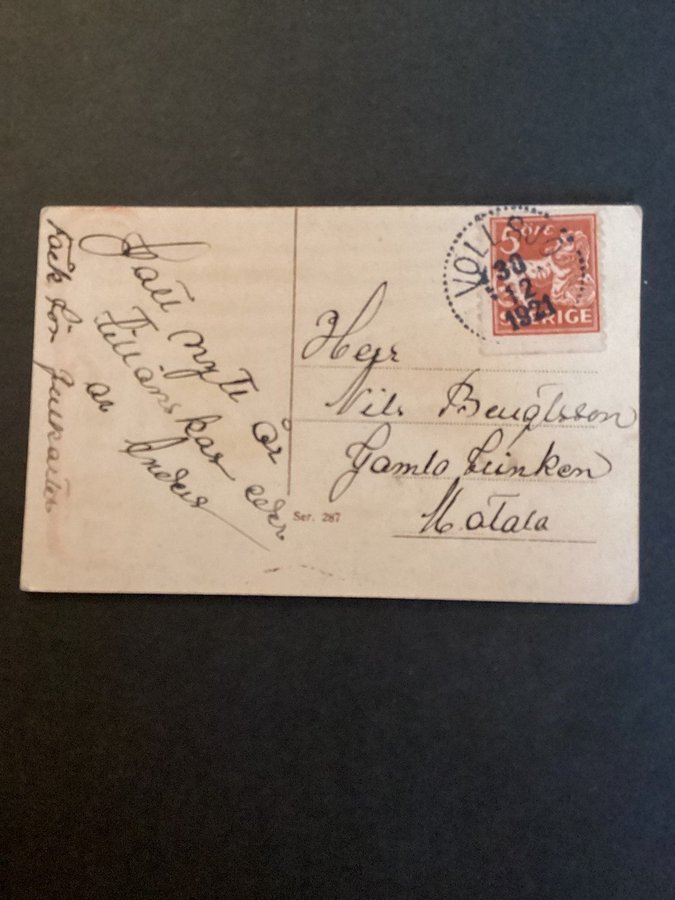 Gott nytt år
tillönskas eder
av Anders
Tack för Julkortet
5 ÖRE
SVERIGE
VOLLSJÖ
30
12
1921
Herr
Nils Bengtsson
Gamla
Motala
Ser. 287